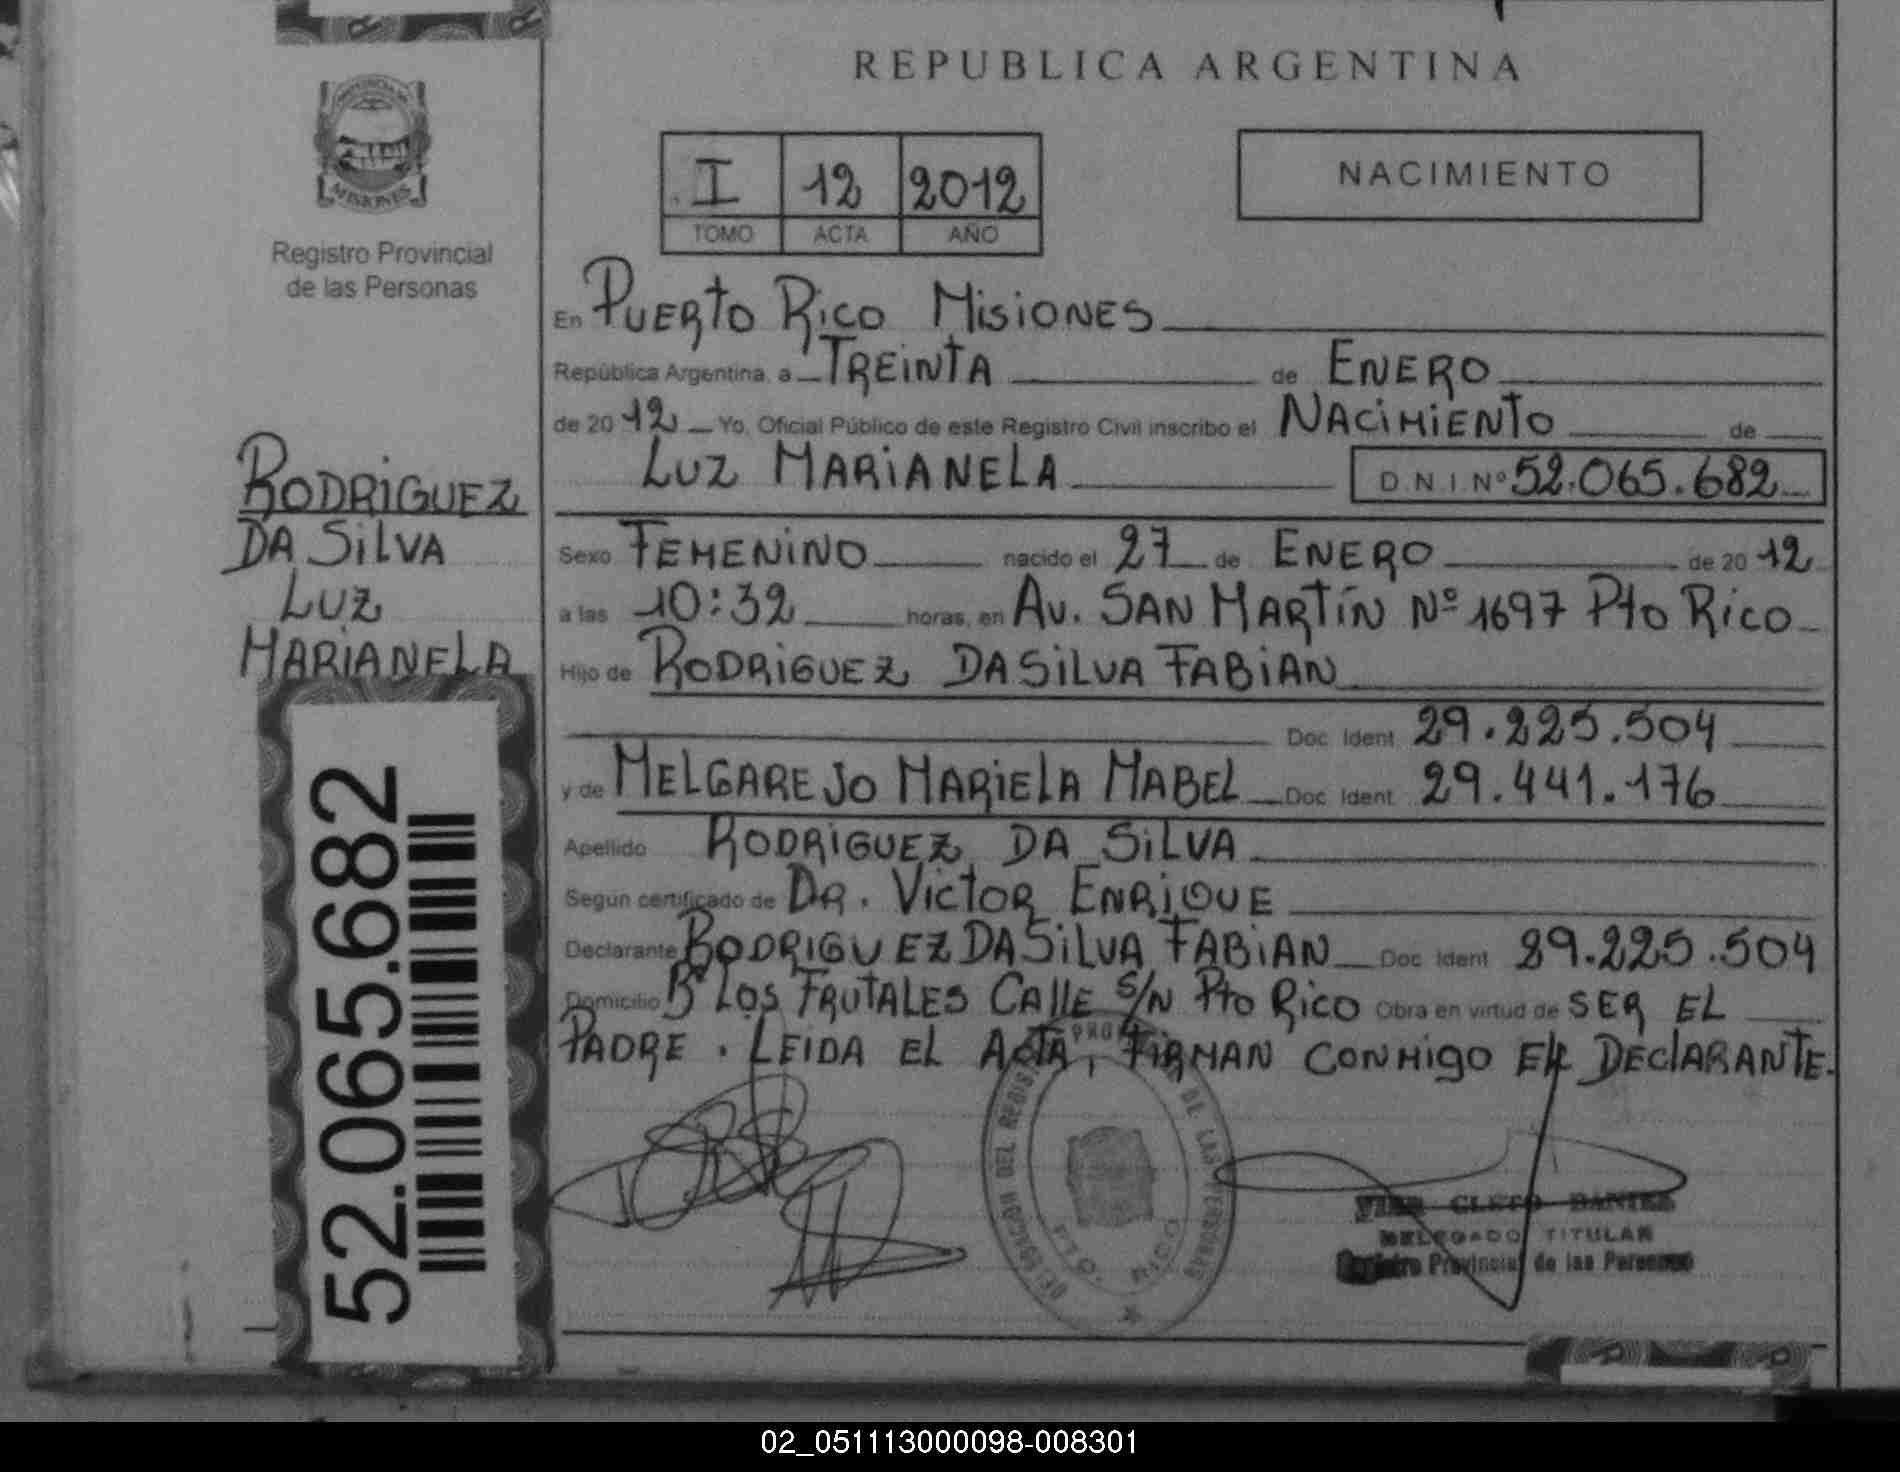 REPUBLICA ARGENTINA
MISIONES
Registro Provincial
de las Personas
I 12 2012
TOMO ACTA AÑO
NACIMIENTO
En PUERTO RICO MISIONES
República Argentina, a TREINTA de ENERO
de 2012 Yo, Oficial Público de este Registro Civil inscribo el NACIMIENTO de
LUZ MARIANELA D.N.I.Nº 52.065.682
RODRIGUEZ
DA SILVA
LUZ
MARIANELA
Sexo FEMENINO nacido el 27 de ENERO de 2012
a las 10:32 horas, en AV. SAN MARTÍN Nº 1697 Pto RICO
Hijo de RODRIGUEZ DA SILVA FABIAN
Doc Ident 29.225.504
y de MELGAREJO MARIELA MABEL Doc Ident 29.441.176
Apellido RODRIGUEZ DA SILVA
Según certificado de DR. VICTOR ENRIQUE
Declarante RODRIGUEZ DA SILVA FABIAN Doc Ident 29.225.504
Domicilio Bº LOS FRUTALES CALLE S/N Pto RICO Obra en virtud de SER EL
PADRE. LEIDA EL ACTA, FIRMAN CONMIGO EL DECLARANTE.
52.065.682
DELEGACION DEL REGISTRO DE LAS PERSONAS
PTO. RICO
CLETO DANIEL
DELEGADO TITULAR
Registro Provincial de las Personas
02_051113000098-008301